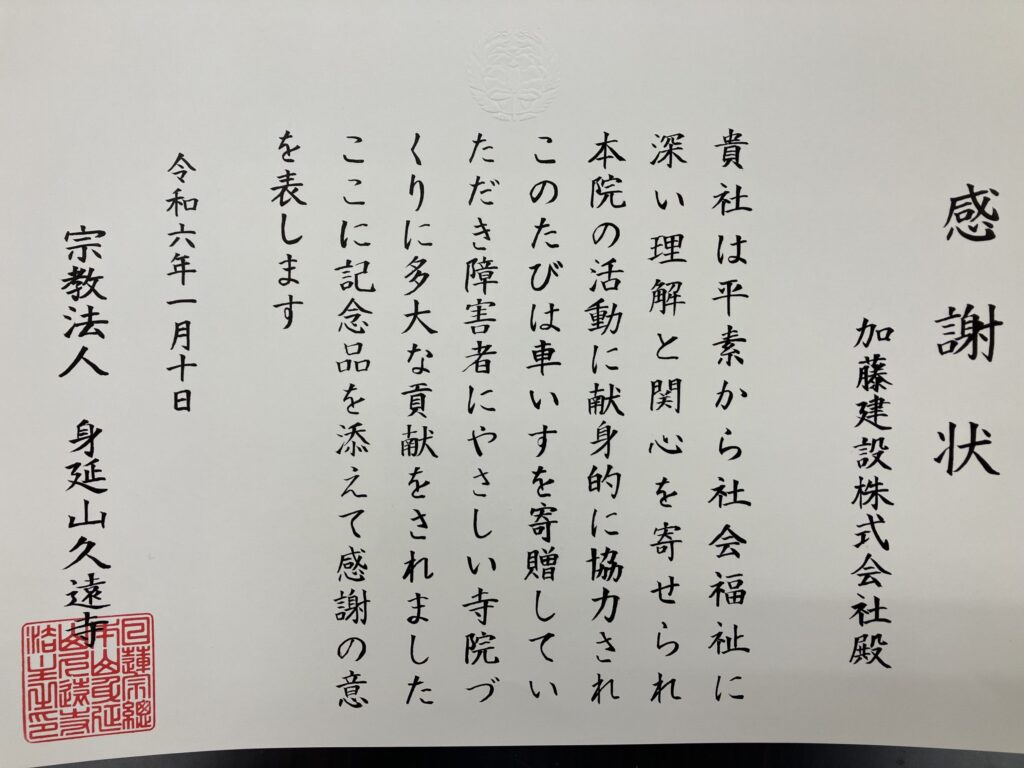 感謝状
加藤建設株式会社殿
貴社は平素から社会福祉に
深い理解と関心を寄せられ
本院の活動に献身的に協力され
このたびは車いすを寄贈してい
ただき障害者にやさしい寺院づ
くりに多大な貢献をされました
ここに記念品を添えて感謝の意
を表します
令和六年一月十日
宗教法人 身延山久遠寺